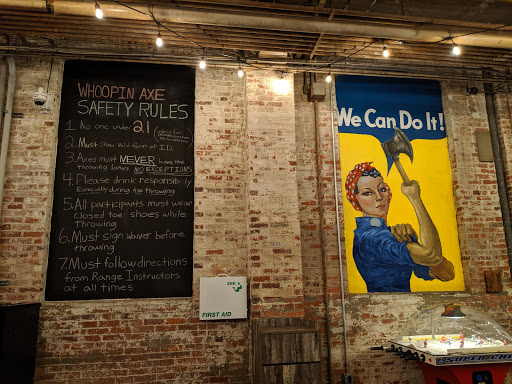 WHOOPIN AXE
SAFETY RULES
1. No one under 21
2. Must show valid form of I.D.
3. Axes must NEVER leave the
throwing lanes NO EXCEPTIONS
4. Please drink responsibly
Especially during Axe throwing
5. All participants must wear
closed toe shoes while
throwing
6. Must sign waiver before
throwing
7. Must follow directions
from Range Instructors
at all times
We Can Do It!
ZEE
FIRST AID
SUPER CHEXX